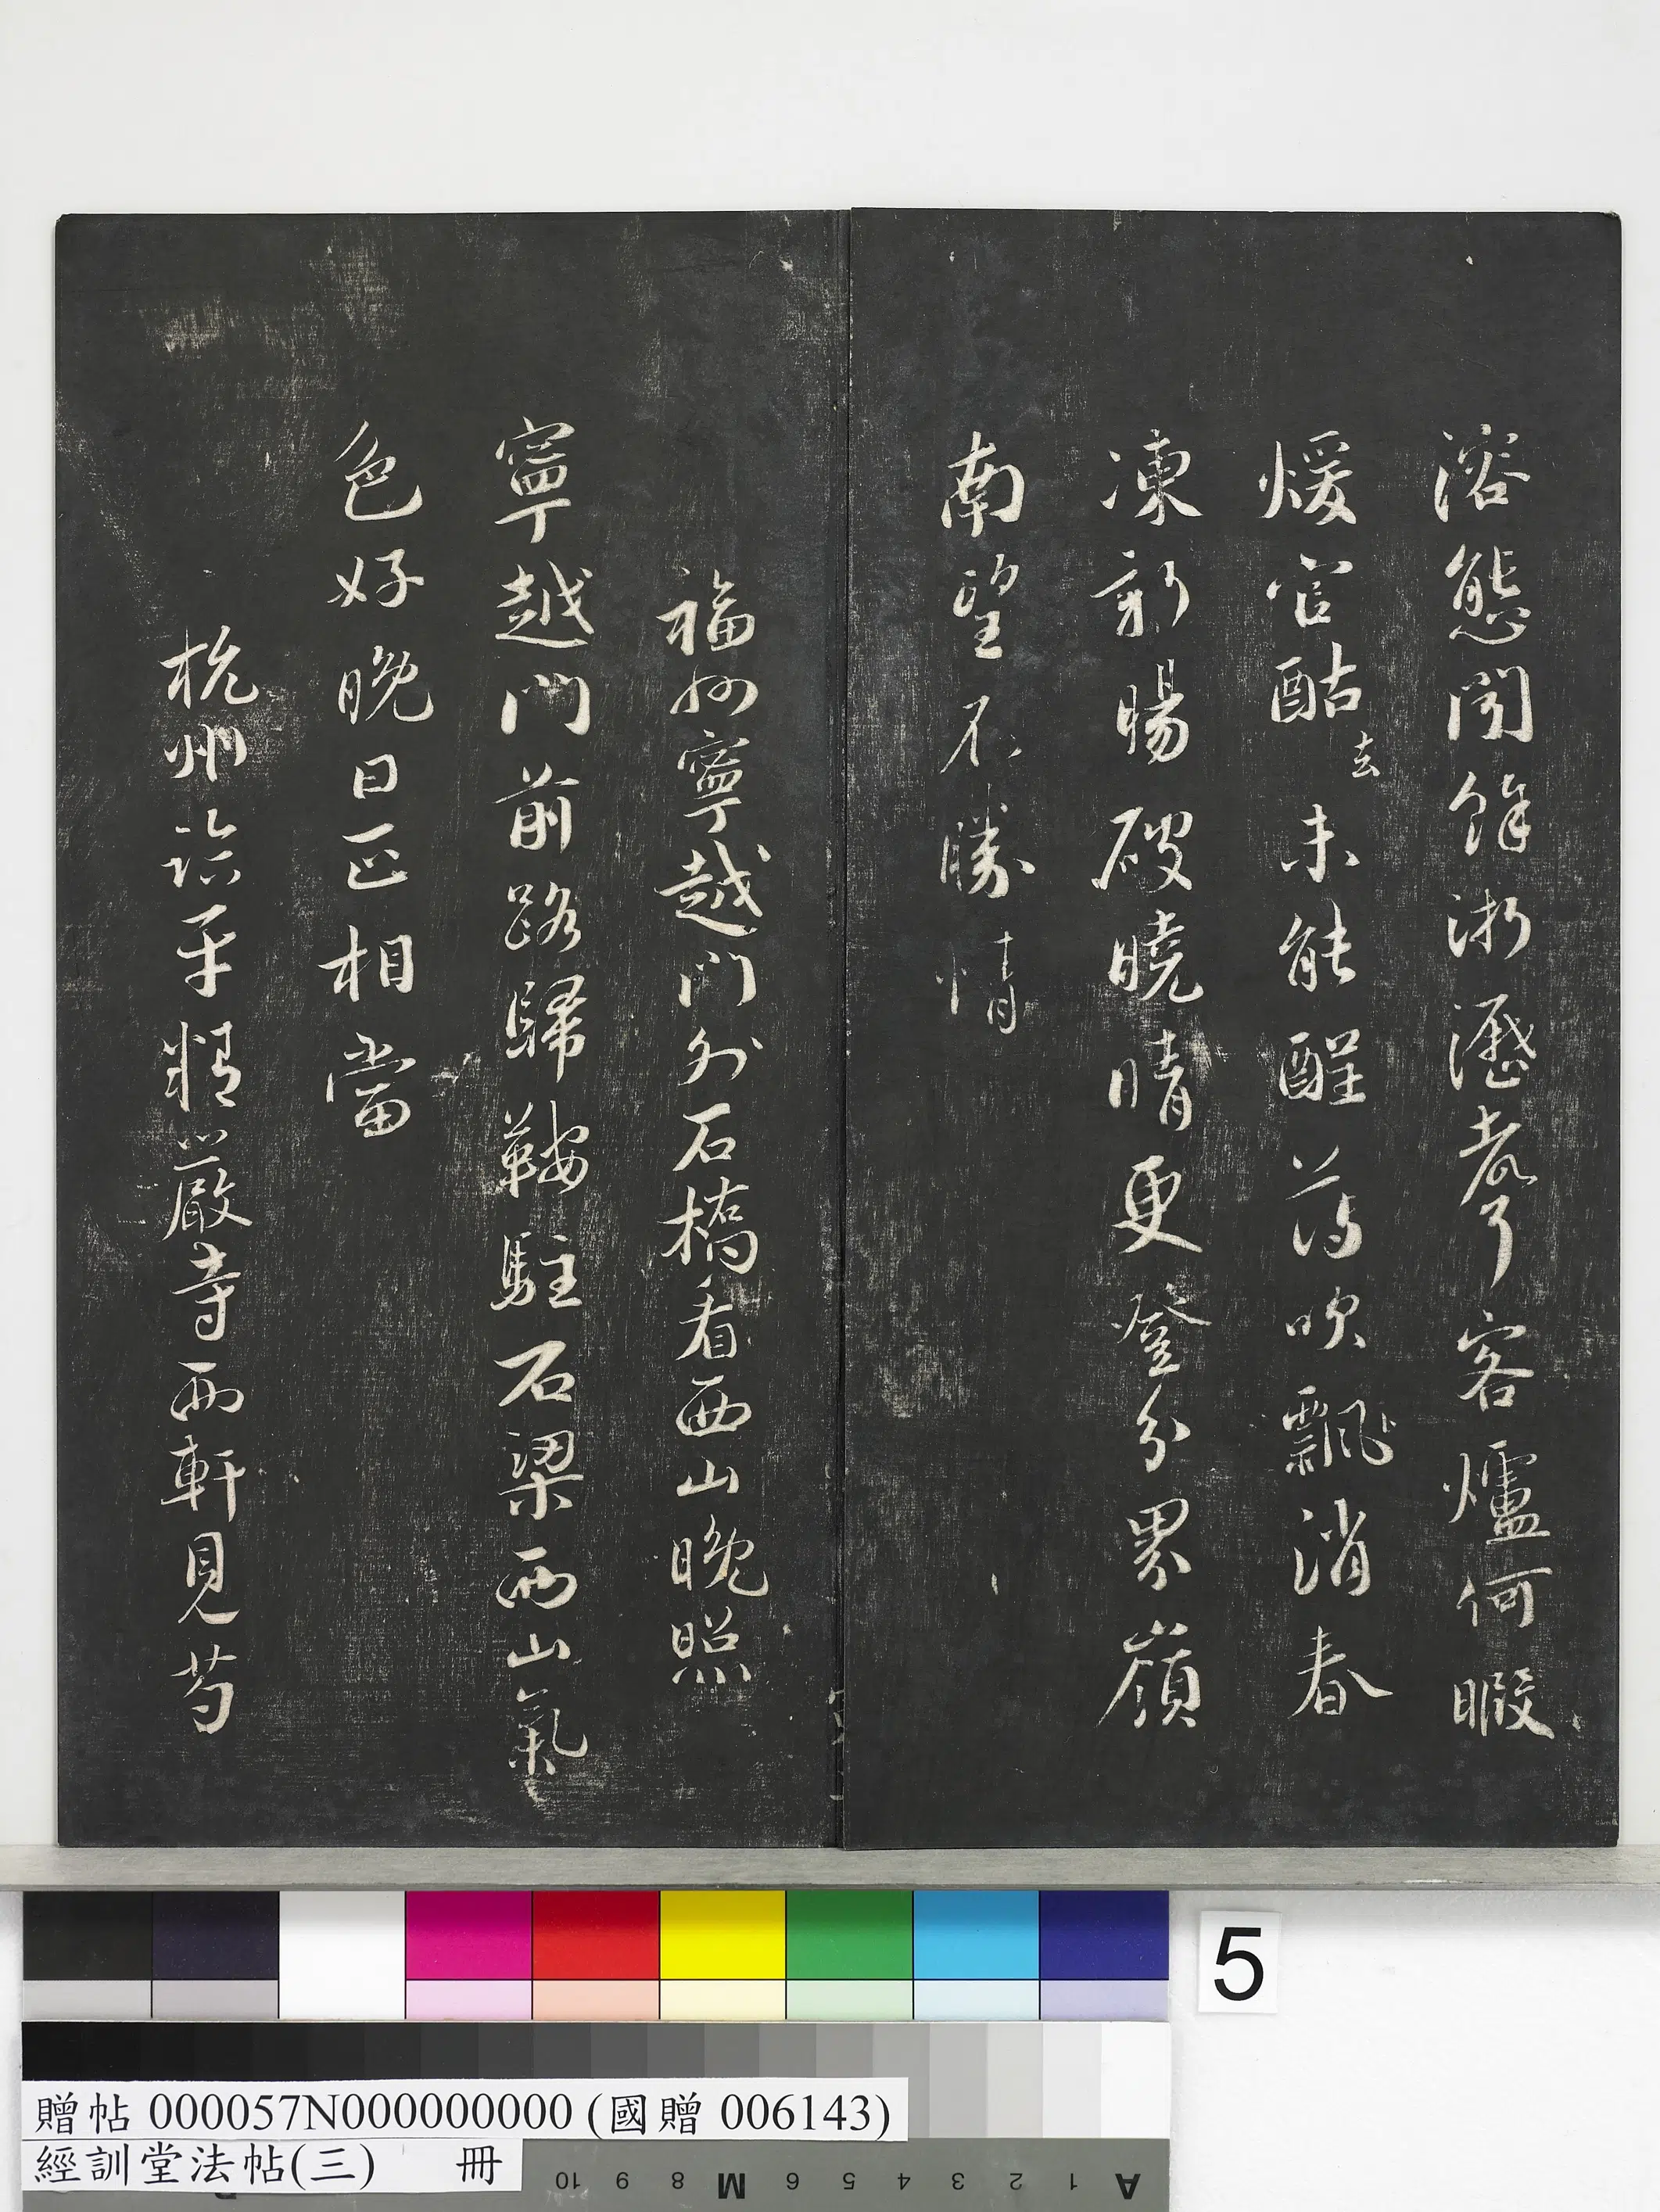 溶態聞餘淅瀝聲客爐何暇
煖官酤去未能醒薄吹飄消春
凍新暘破曉晴更登分界嶺
南望不勝情
福州寧越門外石橋看西山晚照
寧越門前路歸鞍駐石梁西山氣
色好晚日正相當
杭州臨平精嚴寺西軒見芍
5
贈帖 000057N000000000 (國贈 006143)
經訓堂法帖(三) 冊
10 9 8 M 6 5 4 3 2 1 A